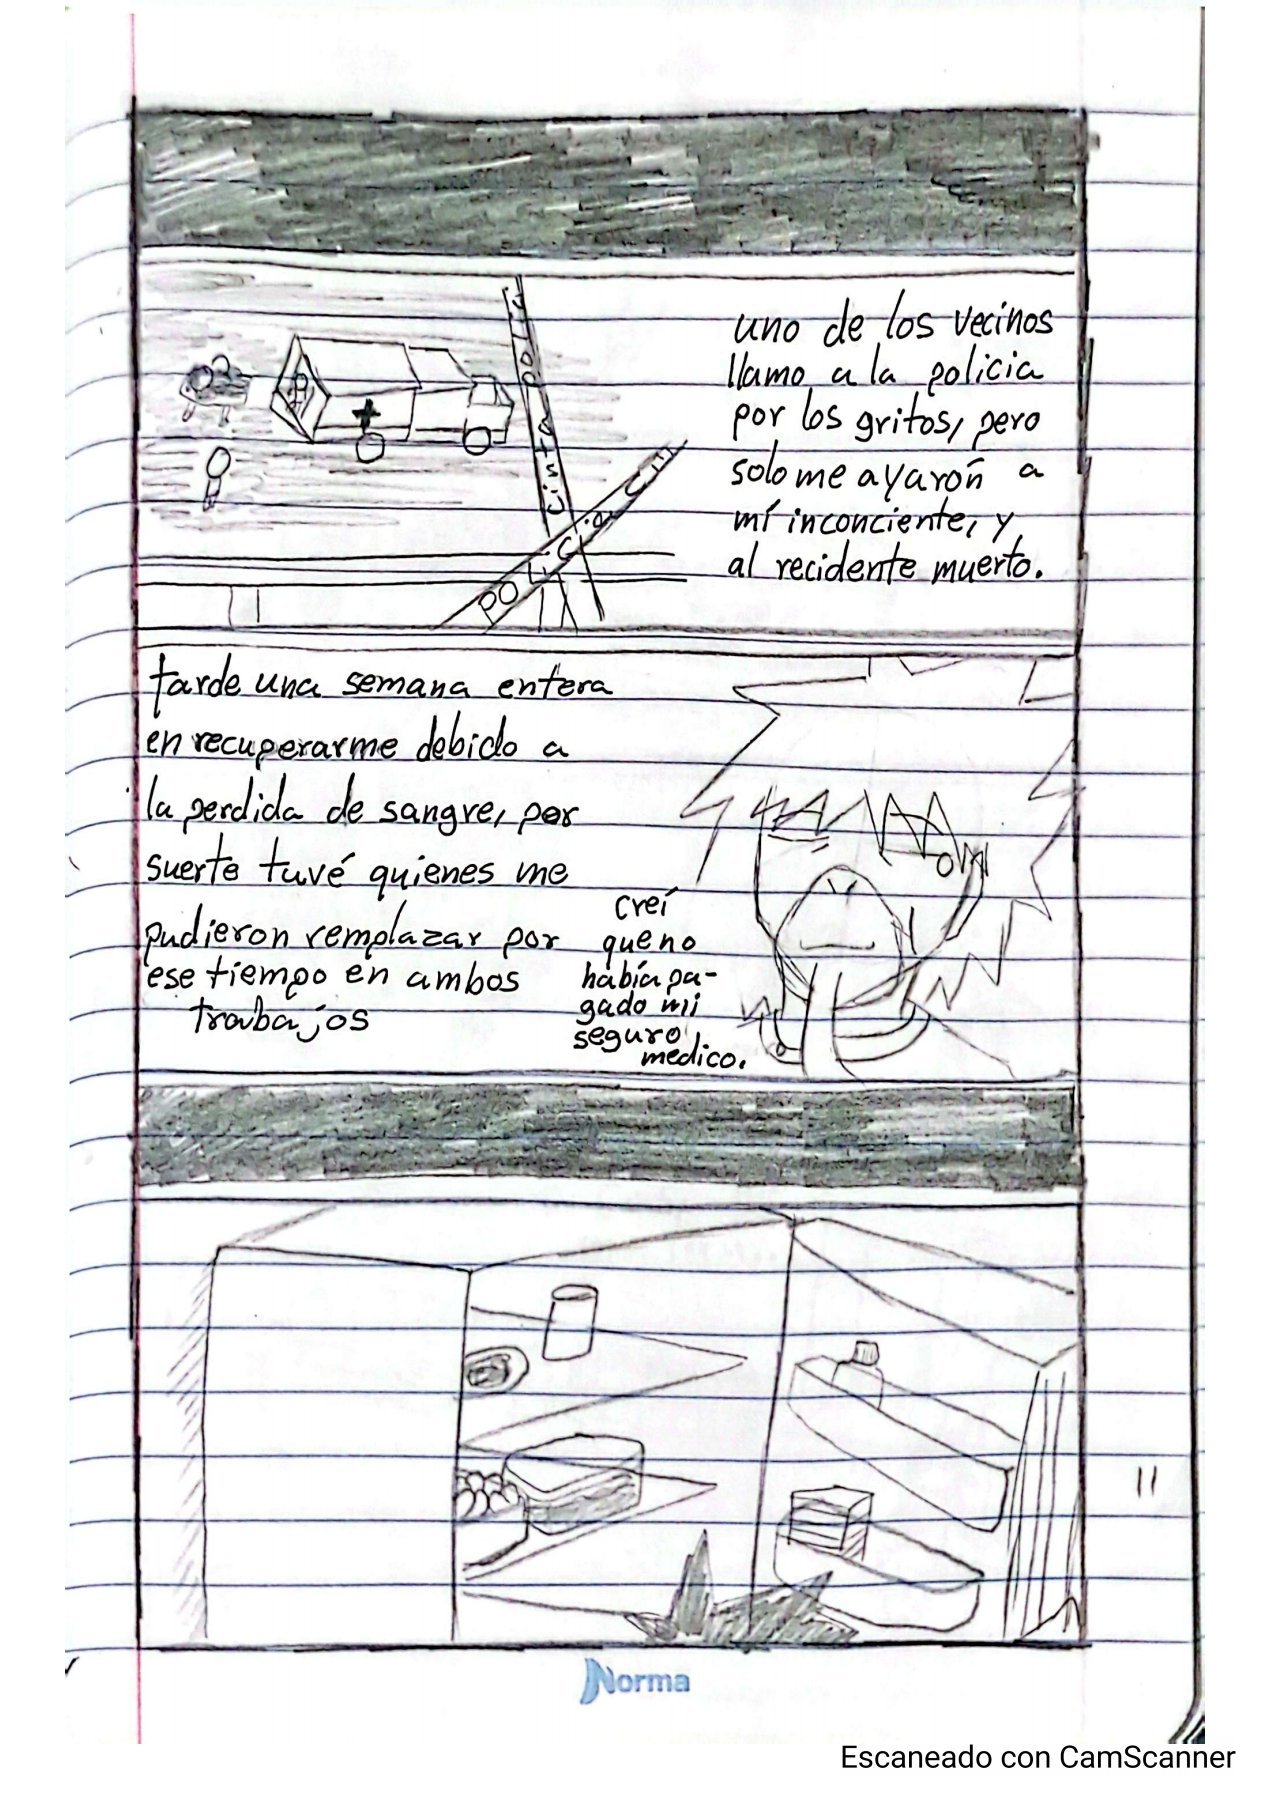 uno de los vecinos
llamo a la policia
por los gritos, pero
solo me ayarón a
mí inconciente, y
al recidente muerto.
cinta polic
POLICIA CIN
tarde una semana entera
en recuperarme debido a
la perdida de sangre, por
suerte tuvé quienes me
pudieron remplazar por
ese tiempo en ambos
trabajos
creí
que no
había pa-
gado mi
seguro
medico.
11
Norma
Escaneado con CamScanner